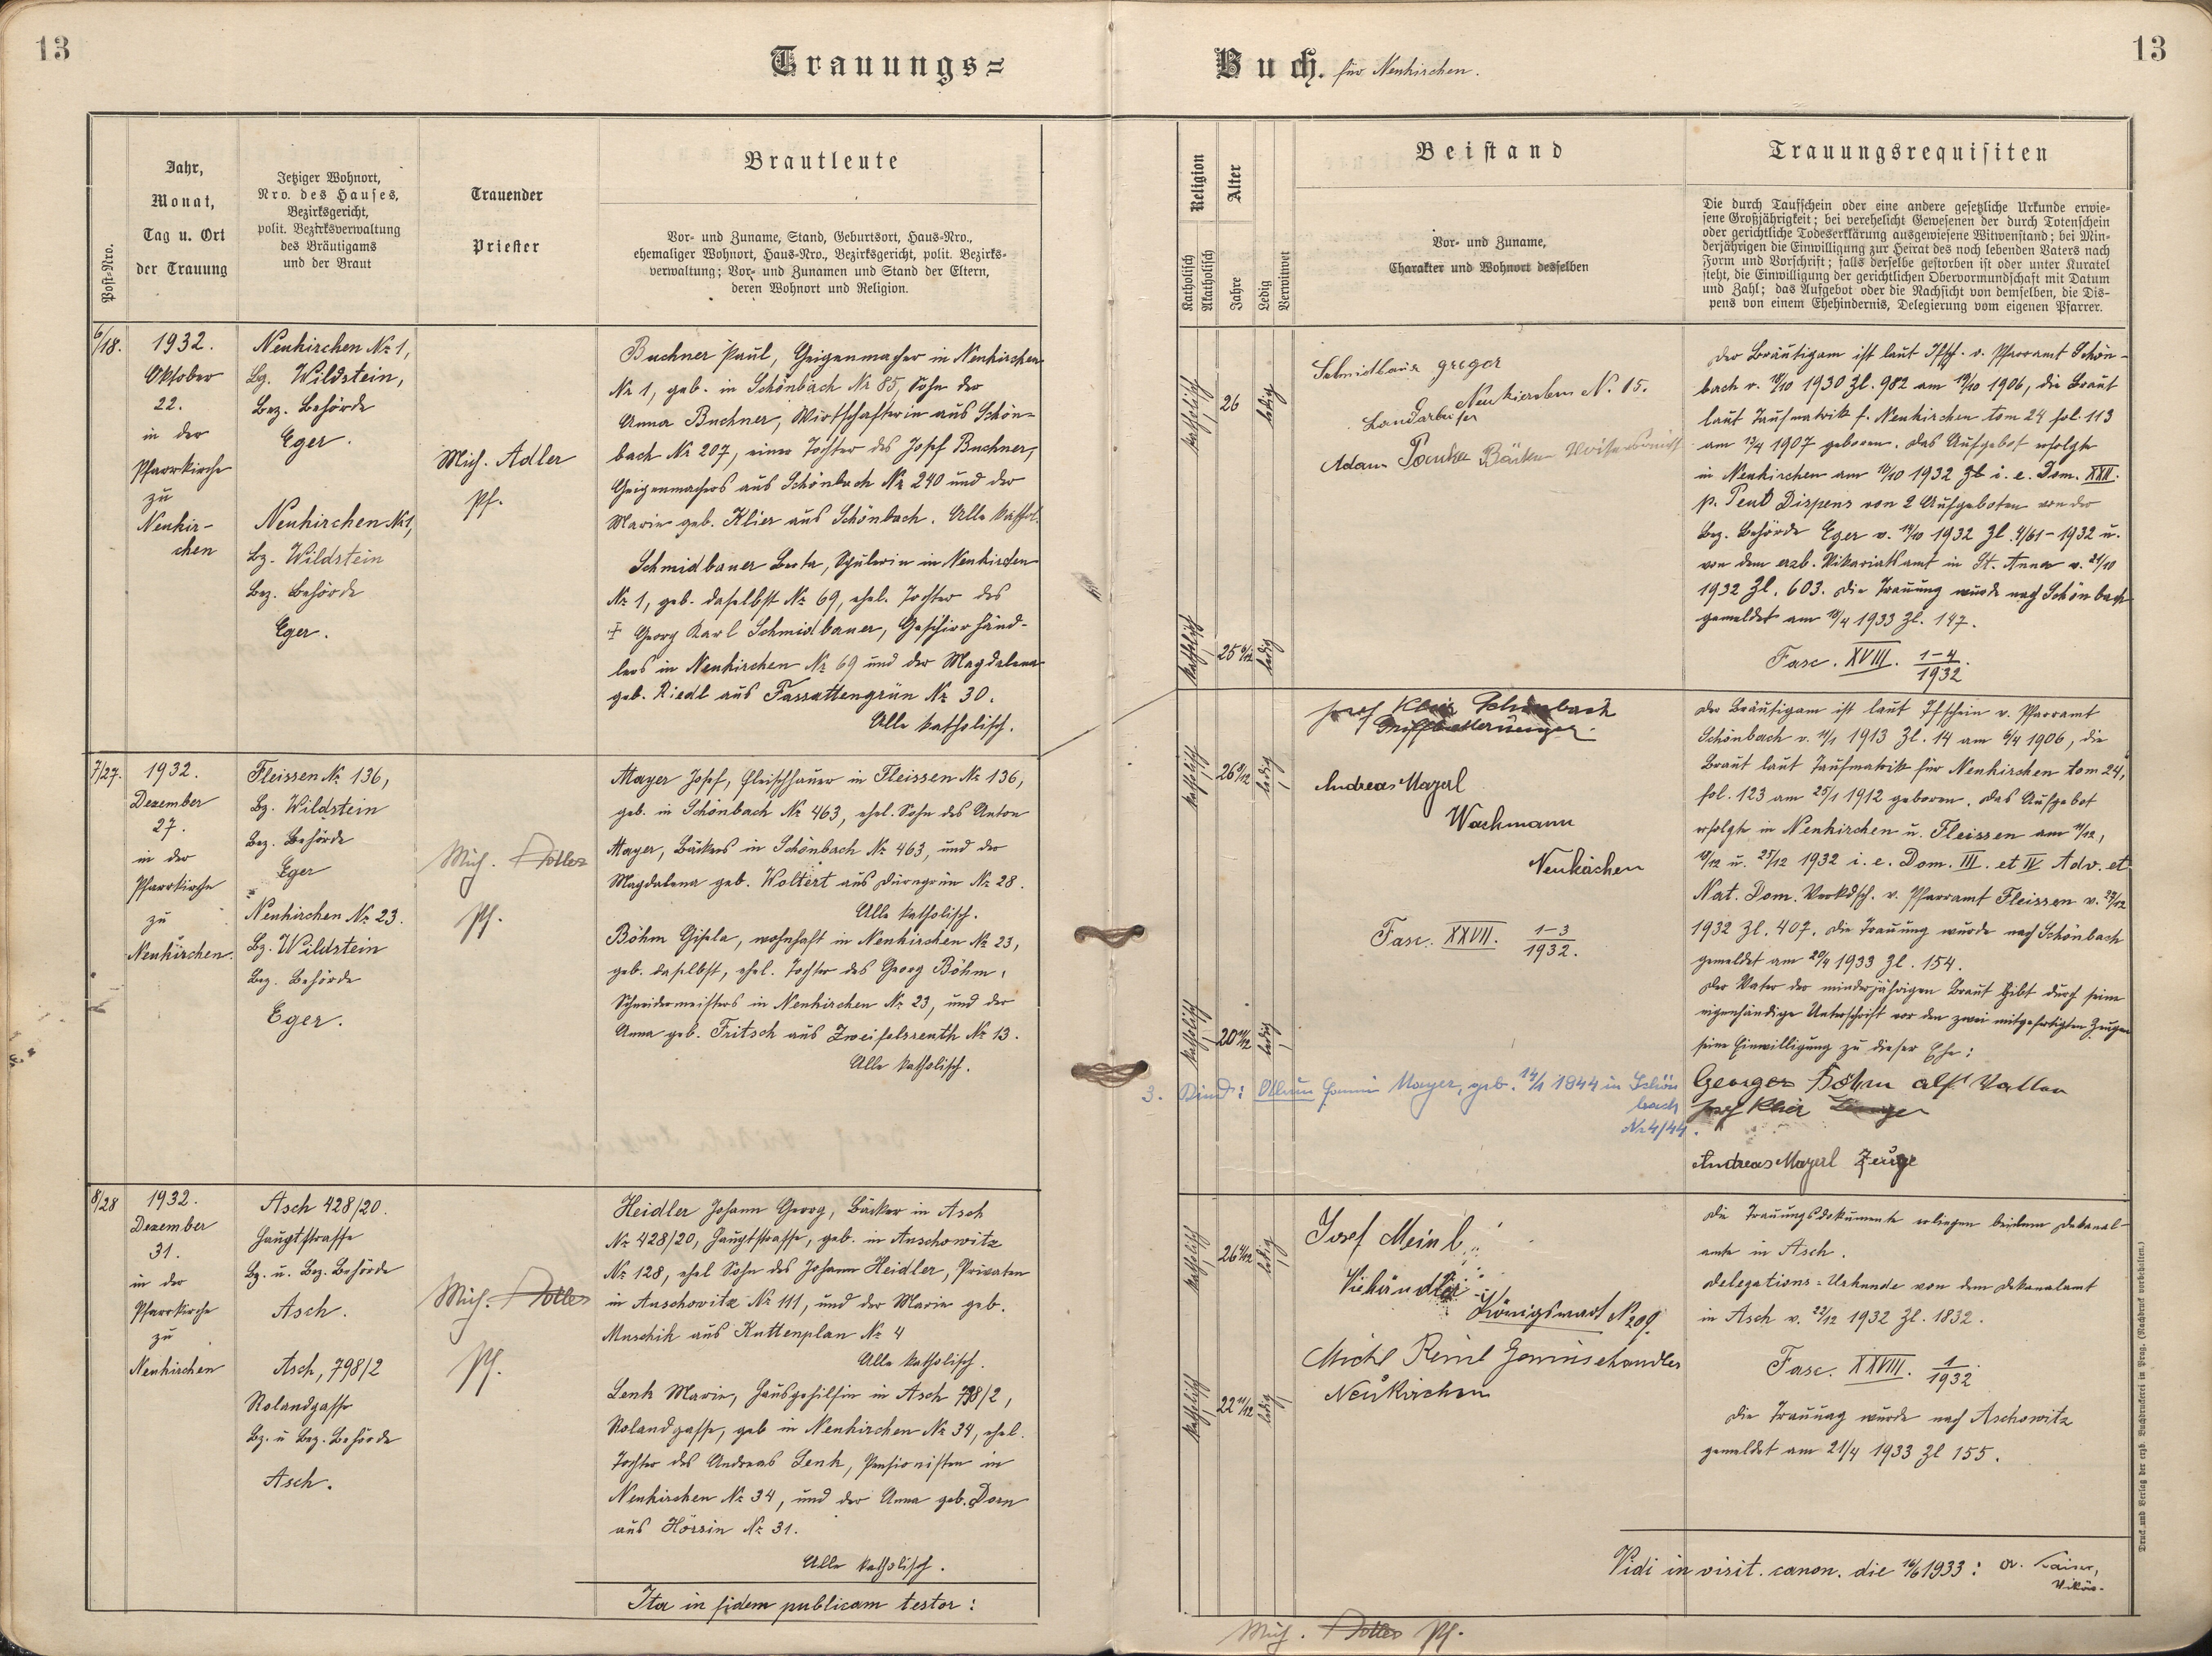 13
Trauungs=
Buch. für Neukirchen.
13
Post-Nro.
Jahr,
Monat,
Tag u. Ort
der Trauung
Jetziger Wohnort,
Nro. des Hauses,
Bezirksgericht,
polit. Bezirksverwaltung
des Bräutigams
und der Braut
Trauender
Priester
Brautleute
Vor- und Zuname, Stand, Geburtsort, Haus-Nro.,
ehemaliger Wohnort, Haus-Nro., Bezirksgericht, polit. Bezirks-
verwaltung; Vor- und Zunamen und Stand der Eltern,
deren Wohnort und Religion.
Religion
Katholisch
Akatholisch
Alter
Jahre
Ledig
Verwitwet
Beistand
Vor- und Zuname,
Charakter und Wohnort desselben
Trauungsrequisiten
Die durch Taufschein oder eine andere gesetzliche Urkunde erwie-
sene Großjährigkeit; bei verehelicht Gewesenen der durch Totenschein
oder gerichtliche Todeserklärung ausgewiesene Witwenstand; bei Min-
derjährigen die Einwilligung zur Heirat des noch lebenden Vaters nach
Form und Vorschrift; falls derselbe gestorben ist oder unter Kuratel
steht, die Einwilligung der gerichtlichen Obervormundschaft mit Datum
und Zahl; das Aufgebot oder die Nachsicht von demselben, die Dis-
pens von einem Ehehindernis, Delegierung vom eigenen Pfarrer.
6/18.
1932.
Oktober
22.
in der
Pfarrkirche
zu
Neukir-
chen
Neukirchen № 1,
Bg. Wildstein,
Bez. Behörde
Eger.
Neukirchen № 1,
Bg. Wildstein
Bez. Behörde
Eger.
Mich. Adler
Pf.
Buchner Paul, Geigenmacher in Neukirchen
№ 1, geb. in Schönbach № 85, Sohn der
Anna Buchner, Wirtschafterin aus Schön-
bach № 207, einer Tochter des Josef Buchner,
Geigenmachers aus Schönbach № 240 und der
Marie geb. Klier aus Schönbach. Alle kathol.
Schmidbauer Berta, Schülerin in Neukirchen
№ 1, geb. daselbst № 69, ehel. Tochter des
† Georg Karl Schmidbauer, Geschirrhänd-
lers in Neukirchen № 69 und der Magdalena
geb. Riedl aus Fassattengrün № 30.
Alle katholisch.
katholisch
26
ledig
katholisch
25 6/12
ledig
Schmidbaur gregor
Neukierchen N. 15.
Landarbeiter
Adam
der Bräutigam ist laut Tfsch. v. Pfarramt Schön-
bach v. 18/10 1930 Zl. 982 am 19/10 1906, die Braut
laut Taufmatrik f. Neukirchen tom 24 fol. 113
am 13/4 1907 geboren. Das Aufgebot erfolgte
in Neukirchen am 16/10 1932 i. e. Dom. XXII.
p. Pent Dispens von 2 Aufgeboten von der
Bez. Behörde Eger v. 19/10 1932 Zl. 4/61-1932 u.
von dem erzb. Vikariatsamt in St. Anna v. 21/10
1932 Zl. 603. Die Trauung wurde nach Schönbach
gemeldet am 18/4 1933 Zl. 147.
Fasc. XVIII. 1-4/1932.
7/27.
1932.
Dezember
27.
in der
Pfarrkirche
zu
Neukirchen.
Fleissen № 136,
Bg. Wildstein
Bez. Behörde
Eger
Neukirchen № 23.
Bg. Wildstein
Bez. Behörde
Eger.
Mich. Adler
Pf.
Mayer Josef, Fleischhauer in Fleissen № 136,
geb. in Schönbach № 463, ehel. Sohn des Anton
Mayer, Bäckers in Schönbach № 463, und der
Magdalena geb. Woltert aus Dürngrün № 28.
Alle katholisch.
Böhm Gisela, wohnhaft in Neukirchen № 23,
geb. daselbst, ehel. Tochter des Georg Böhm,
Schneidermeisters in Neukirchen № 23, und der
Anna geb. Fritsch aus Zweifelsreuth № 13.
Alle katholisch.
katholisch
26 8/12
ledig
katholisch
20 11/12
ledig
Josef Klier Schönbach
Andreas Mayerl
Wachmann
Neukirchen
Fasc. XXVII. 1-3/1932.
3. Kind: Mayer, geb. 14/1 1944 in Schön
bach
№ 4/44.
der Bräutigam ist laut Tfschein v. Pfarramt
Schönbach v. 11/1 1913 Zl. 14 am 6/4 1906, die
Braut laut Taufmatrik für Neukirchen tom 24,
fol. 123 am 25/1 1912 geboren. Das Aufgebot
erfolgte in Neukirchen u. Fleissen am 11/12,
18/12 u. 25/12 1932 i. e. Dom. III. et IV Adv. et
Nat. Dom. Verkdsch. v. Pfarramt Fleissen v. 27/12
1932 Zl. 407. Die Trauung wurde nach Schönbach
gemeldet am 20/4 1933 Zl. 154.
Der Vater der minderjährigen Braut gibt durch seine
eigenhändige Unterschrift vor den zwei mitgefertigten Zeugen
seine Einwilligung zu dieser Ehe:
Georg Böhm als Vatter
Josef Klier Zeuge
Andreas Mayerl Zeuge
8/28
1932.
Dezember
31.
in der
Pfarrkirche
zu
Neukirchen
Asch 428/20.
Hauptstrasse
Bg. u. Bez. Behörde
Asch.
Asch, 798/2
Rolandgasse
Bg. u Bez. Behörde
Asch.
Mich. Adler
Pf.
Heidler Johann Georg, Bäcker in Asch
№ 428/20, Hauptstrasse, geb. in Auschowitz
№ 128, ehel Sohn des Johann Heidler, Privaten
in Auschowitz № 111, und der Marie geb.
Muschik aus Kuttenplan № 4
Alle katholisch.
Lenk Marie, Hausgehilfin in Asch 798/2,
Rolandgasse, geb in Neukirchen № 34, ehel.
Tochter des Andreas Lenk, Pensionisten in
Neukirchen № 34, und der Anna geb. Dorn
aus Hörsin № 31.
Alle katholisch.
Ita in fidem publicam testor:
katholisch
26
ledig
katholisch
22 11/12
ledig
Josef Meinl
Viehändler
Königswart N 209.
Michl Reinl Gemüsehandler
Neukirchen
Die Trauungsdokumente erliegen beidem Dekanal-
amte in Asch.
Delegations-Urkunde von dem Dekanalamt
in Asch v. 22/12 1932 Zl. 1832.
Fasc. XXVIII. 1/1932
Die Trauung wurde nach Aschowitz
gemeldet am 21/4 1933 Zl 155.
Vidi in visit. canon. die 16/6 1933:
Vikär.
Mich. Adler Pf.
Druck und Verlag der erzb. Buchdruckerei in Prag. (Nachdruck vorbehalten.)